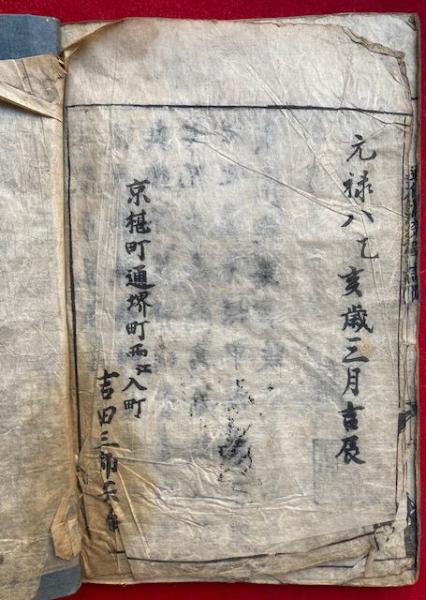 元禄八乙亥歳三月吉辰
京椹町通堺町西江入町
吉田三郎兵衛